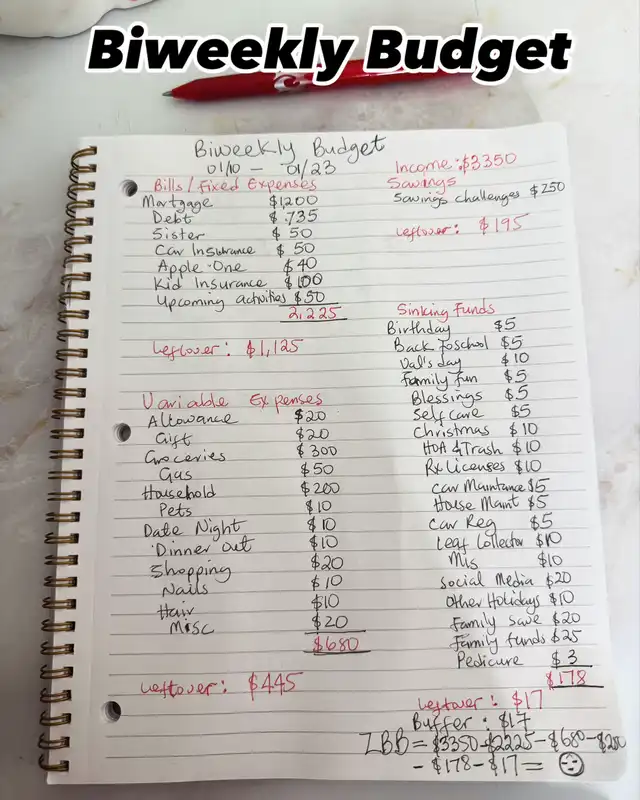 Biweekly Budget
Biweekly Budget
01/10 - 01/23
Bills/Fixed Expenses
Mortgage $1200
Debt $735
Sister $50
Car Insurance $50
Apple One $40
Kid Insurance $100
Upcoming activities $50
2,225
Leftover: $1,125
Variable Expenses
Allowance $20
Gift $20
Groceries $300
Gas $50
Household $200
Pets $10
Date Night $10
Dinner out $10
Shopping $20
Nails $10
Hair $10
Misc $20
$680
Leftover: $445
Income: $3350
Savings
Savings challenges $250
Leftover: $195
Sinking Funds
Birthday $5
Back toschol $5
Val's day $10
Family fun $5
Blessings $5
Self care $5
Christmas $10
HOA & Trash $10
Rx Licenses $10
Car Maintance $5
House Maint $5
Car Reg $5
Leaf Collector $10
Mis $10
Social Media $20
Other Holidays $10
Family save $20
Family funds $25
Pedicure $3
$178
Leftover: $17
Buffer: $17
ZBB = $3350-$2225-$680-$250
- $178-$17=